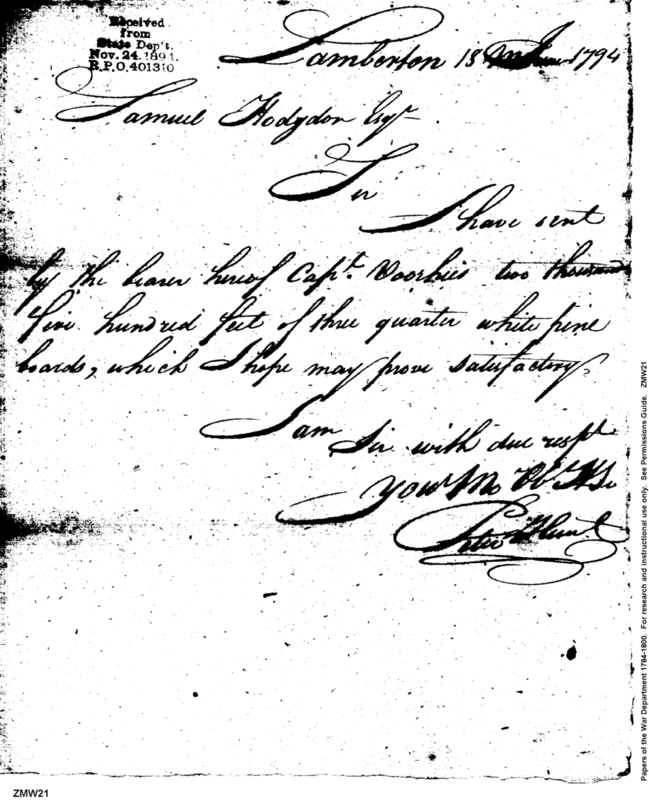 Received
from
State Dep't.
Nov. 24. 1894.
R.P.O. 401310
Lamberton 18 June 1794
Samuel Hodgdon Esqr.
Sir
I have sent
by the bearer hereof Capt. Voorhies two thousand
five hundred feet of three quarter white pine
boards, which I hope may prove satisfactory.
I am Sir with due respt
your Mo Ob Hs
Peter Hunt
Papers of the War Department 1784-1800. For research and instructional use only. See Permissions Guide. ZMW21
ZMW21